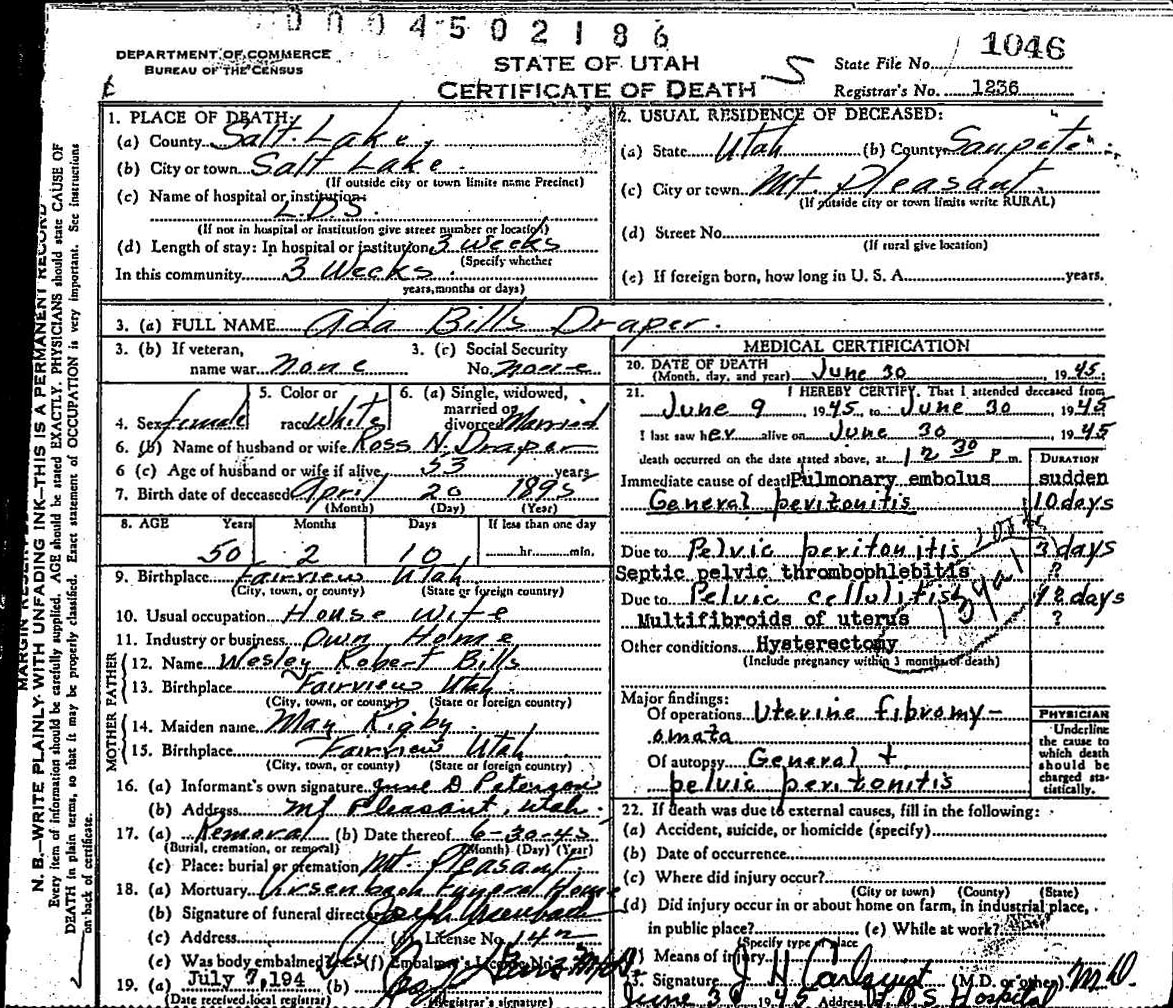 0004502186
DEPARTMENT OF COMMERCE
BUREAU OF THE CENSUS
STATE OF UTAH
CERTIFICATE OF DEATH
5
State File No. 1046
Registrar's No. 1236
MARGIN RESERVED
N. B.—WRITE PLAINLY WITH UNFADING INK—THIS IS A PERMANENT RECORD
Every item of information should be carefully supplied. AGE should be stated EXACTLY. PHYSICIANS should state CAUSE OF
DEATH in plain terms, so that it may be properly classified. Exact statement of OCCUPATION is very important. See instructions
on back of certificate.
1. PLACE OF DEATH:
(a) County Salt Lake
(b) City or town Salt Lake
(If outside city or town limits name Precinct)
(c) Name of hospital or institution:
L.D.S.
(If not in hospital or institution give street number or location)
(d) Length of stay: In hospital or institution 3 Weeks
(Specify whether
In this community 3 Weeks
years, months or days)
2. USUAL RESIDENCE OF DECEASED:
(a) State Utah (b) County Sanpete
(c) City or town Mt. Pleasant
(If outside city or town limits write RURAL)
(d) Street No.
(If rural give location)
(e) If foreign born, how long in U. S. A. years.
3. (a) FULL NAME Ada Bills Draper.
3. (b) If veteran,
name war none
3. (c) Social Security
No. none
4. Sex female
5. Color or
race White
6. (a) Single, widowed,
married or
divorced Married
6. (b) Name of husband or wife Ross N. Draper
6 (c) Age of husband or wife if alive 53 years
7. Birth date of deceased April 20 1895
(Month) (Day) (Year)
8. AGE Years Months Days If less than one day
50 2 10 hr. min.
9. Birthplace Fairview Utah
(City, town, or county) (State or foreign country)
10. Usual occupation House Wife
11. Industry or business Own Home
FATHER
12. Name Wesley Robert Bills
13. Birthplace Fairview Utah
(City, town, or county) (State or foreign country)
MOTHER
14. Maiden name May Rigby
15. Birthplace Fairview Utah
(City, town, or county) (State or foreign country)
16. (a) Informant's own signature June D Peterson
(b) Address Mt Pleasant, Utah.
17. (a) Removal (b) Date thereof 6-30-45
(Burial, cremation, or removal) (Month) (Day) (Year)
(c) Place: burial or cremation Mt. Pleasant
18. (a) Mortuary Ursenbach Funeral Home
(b) Signature of funeral director Joseph Ursenbach
(c) Address (d) License No. 142
(e) Was body embalmed? yes (f) Embalmer's License No.
19. (a) July 7, 194 (b)
(Date received local registrar) (Registrar's signature)
MEDICAL CERTIFICATION
20. DATE OF DEATH
(Month, day, and year) June 30 1945
21. I HEREBY CERTIFY, That I attended deceased from
June 9 1945 to June 30 1945
I last saw her alive on June 30, 1945
death occurred on the date stated above, at 12 30 P m.
DURATION
Immediate cause of death Pulmonary embolus sudden
General peritonitis 10 days
Due to Pelvic peritonitis 3 days
Septic pelvic thrombophlebitis ?
Due to Pelvic cellulitis 12 days
Multifibroids of uterus ?
Other conditions Hysterectomy
(Include pregnancy within 3 months of death)
Major findings:
Of operations Uterine fibromy-
omata
Of autopsy General +
pelvic peritonitis
PHYSICIAN
Underline
the cause to
which death
should be
charged sta-
tistically.
22. If death was due to external causes, fill in the following:
(a) Accident, suicide, or homicide (specify)
(b) Date of occurrence
(c) Where did injury occur?
(City or town) (County) (State)
(d) Did injury occur in or about home on farm, in industrial place,
in public place? (e) While at work?
(Specify type of place
(f) Means of injury
23. Signature J H Carlquist (M.D. or other) MD
June 30 1945 Address LDS Hospital